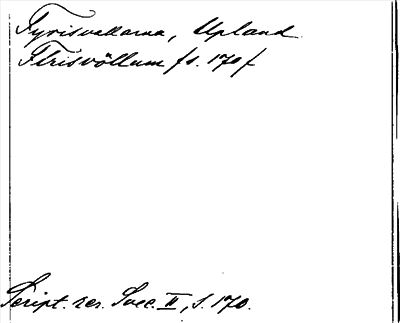 Fyrisvallarna, Upland.
Flrisvöllum /s. 170/
Script. rer. Svec. II, s. 170.